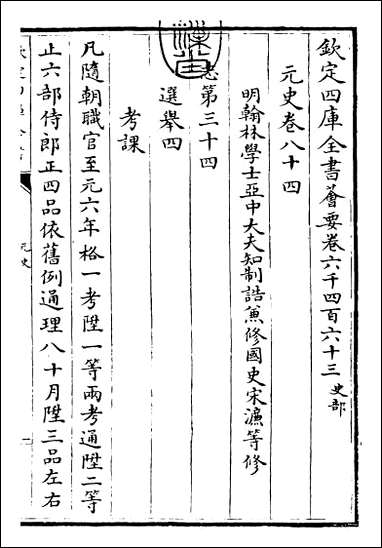 欽定四庫全書薈要卷六千四百六十三 史部
元史卷八十四
明翰林學士亞中大夫知制誥兼修國史宋濂等修
志第三十四
選舉四
考課
凡隨朝職官至元六年格一考陞一等兩考通陞二等
止六部侍郎正四品依舊例通理八十月陞三品左右
元史